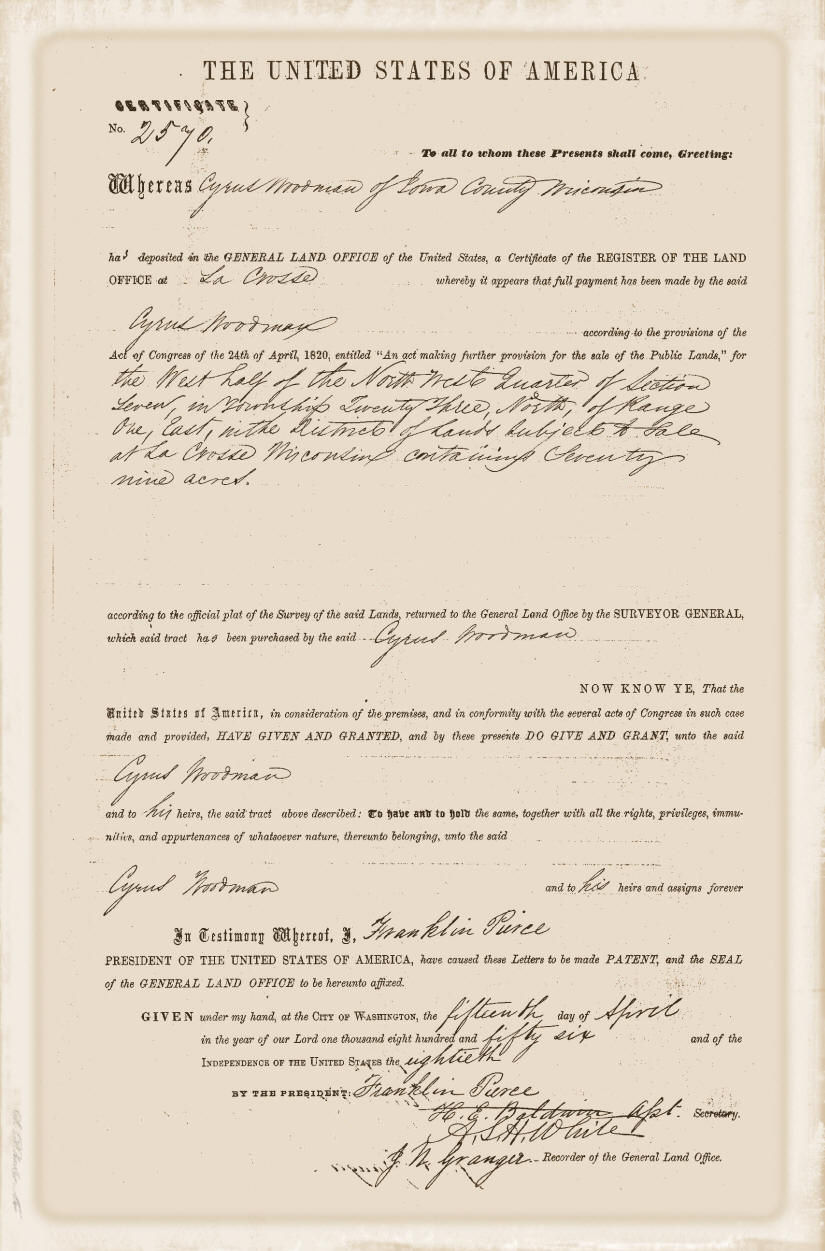 THE UNITED STATES OF AMERICA
CERTIFICATE
No. 2570.
To all to whom these Presents shall come, Greeting:
Whereas Cyrus Woodman of Iowa County Wisconsin
has deposited in the GENERAL LAND OFFICE of the United States, a Certificate of the REGISTER OF THE LAND
OFFICE at La Crosse whereby it appears that full payment has been made by the said
Cyrus Woodman according to the provisions of the
Act of Congress of the 24th of April, 1820, entitled "An act making further provision for the sale of the Public Lands," for
the West half of the North West Quarter of Section
Seven, in Township Twenty Three, North, of Range
One, East, in the District of Lands Subject to Sale
at La Crosse Wisconsin containing Seventy
nine acres.
according to the official plat of the Survey of the said Lands, returned to the General Land Office by the SURVEYOR GENERAL,
which said tract has been purchased by the said Cyrus Woodman
NOW KNOW YE, That the
United States of America, in consideration of the premises, and in conformity with the several acts of Congress in such case
made and provided, HAVE GIVEN AND GRANTED, and by these presents DO GIVE AND GRANT, unto the said
Cyrus Woodman
and to his heirs, the said tract above described: To have and to hold the same, together with all the rights, privileges, immu-
nities, and appurtenances of whatsoever nature, thereunto belonging, unto the said
Cyrus Woodman and to his heirs and assigns forever
In Testimony Whereof, I, Franklin Pierce
PRESIDENT OF THE UNITED STATES OF AMERICA, have caused these Letters to be made PATENT, and the SEAL
of the GENERAL LAND OFFICE to be hereunto affixed.
GIVEN under my hand, at the CITY OF WASHINGTON, the fifteenth day of April
in the year of our Lord one thousand eight hundred and fifty six and of the
INDEPENDENCE OF THE UNITED STATES the eightieth
BY THE PRESIDENT: Franklin Pierce
H. E. Baldwin Asst. Secretary.
A.S.H. White
J. N. Granger Recorder of the General Land Office.